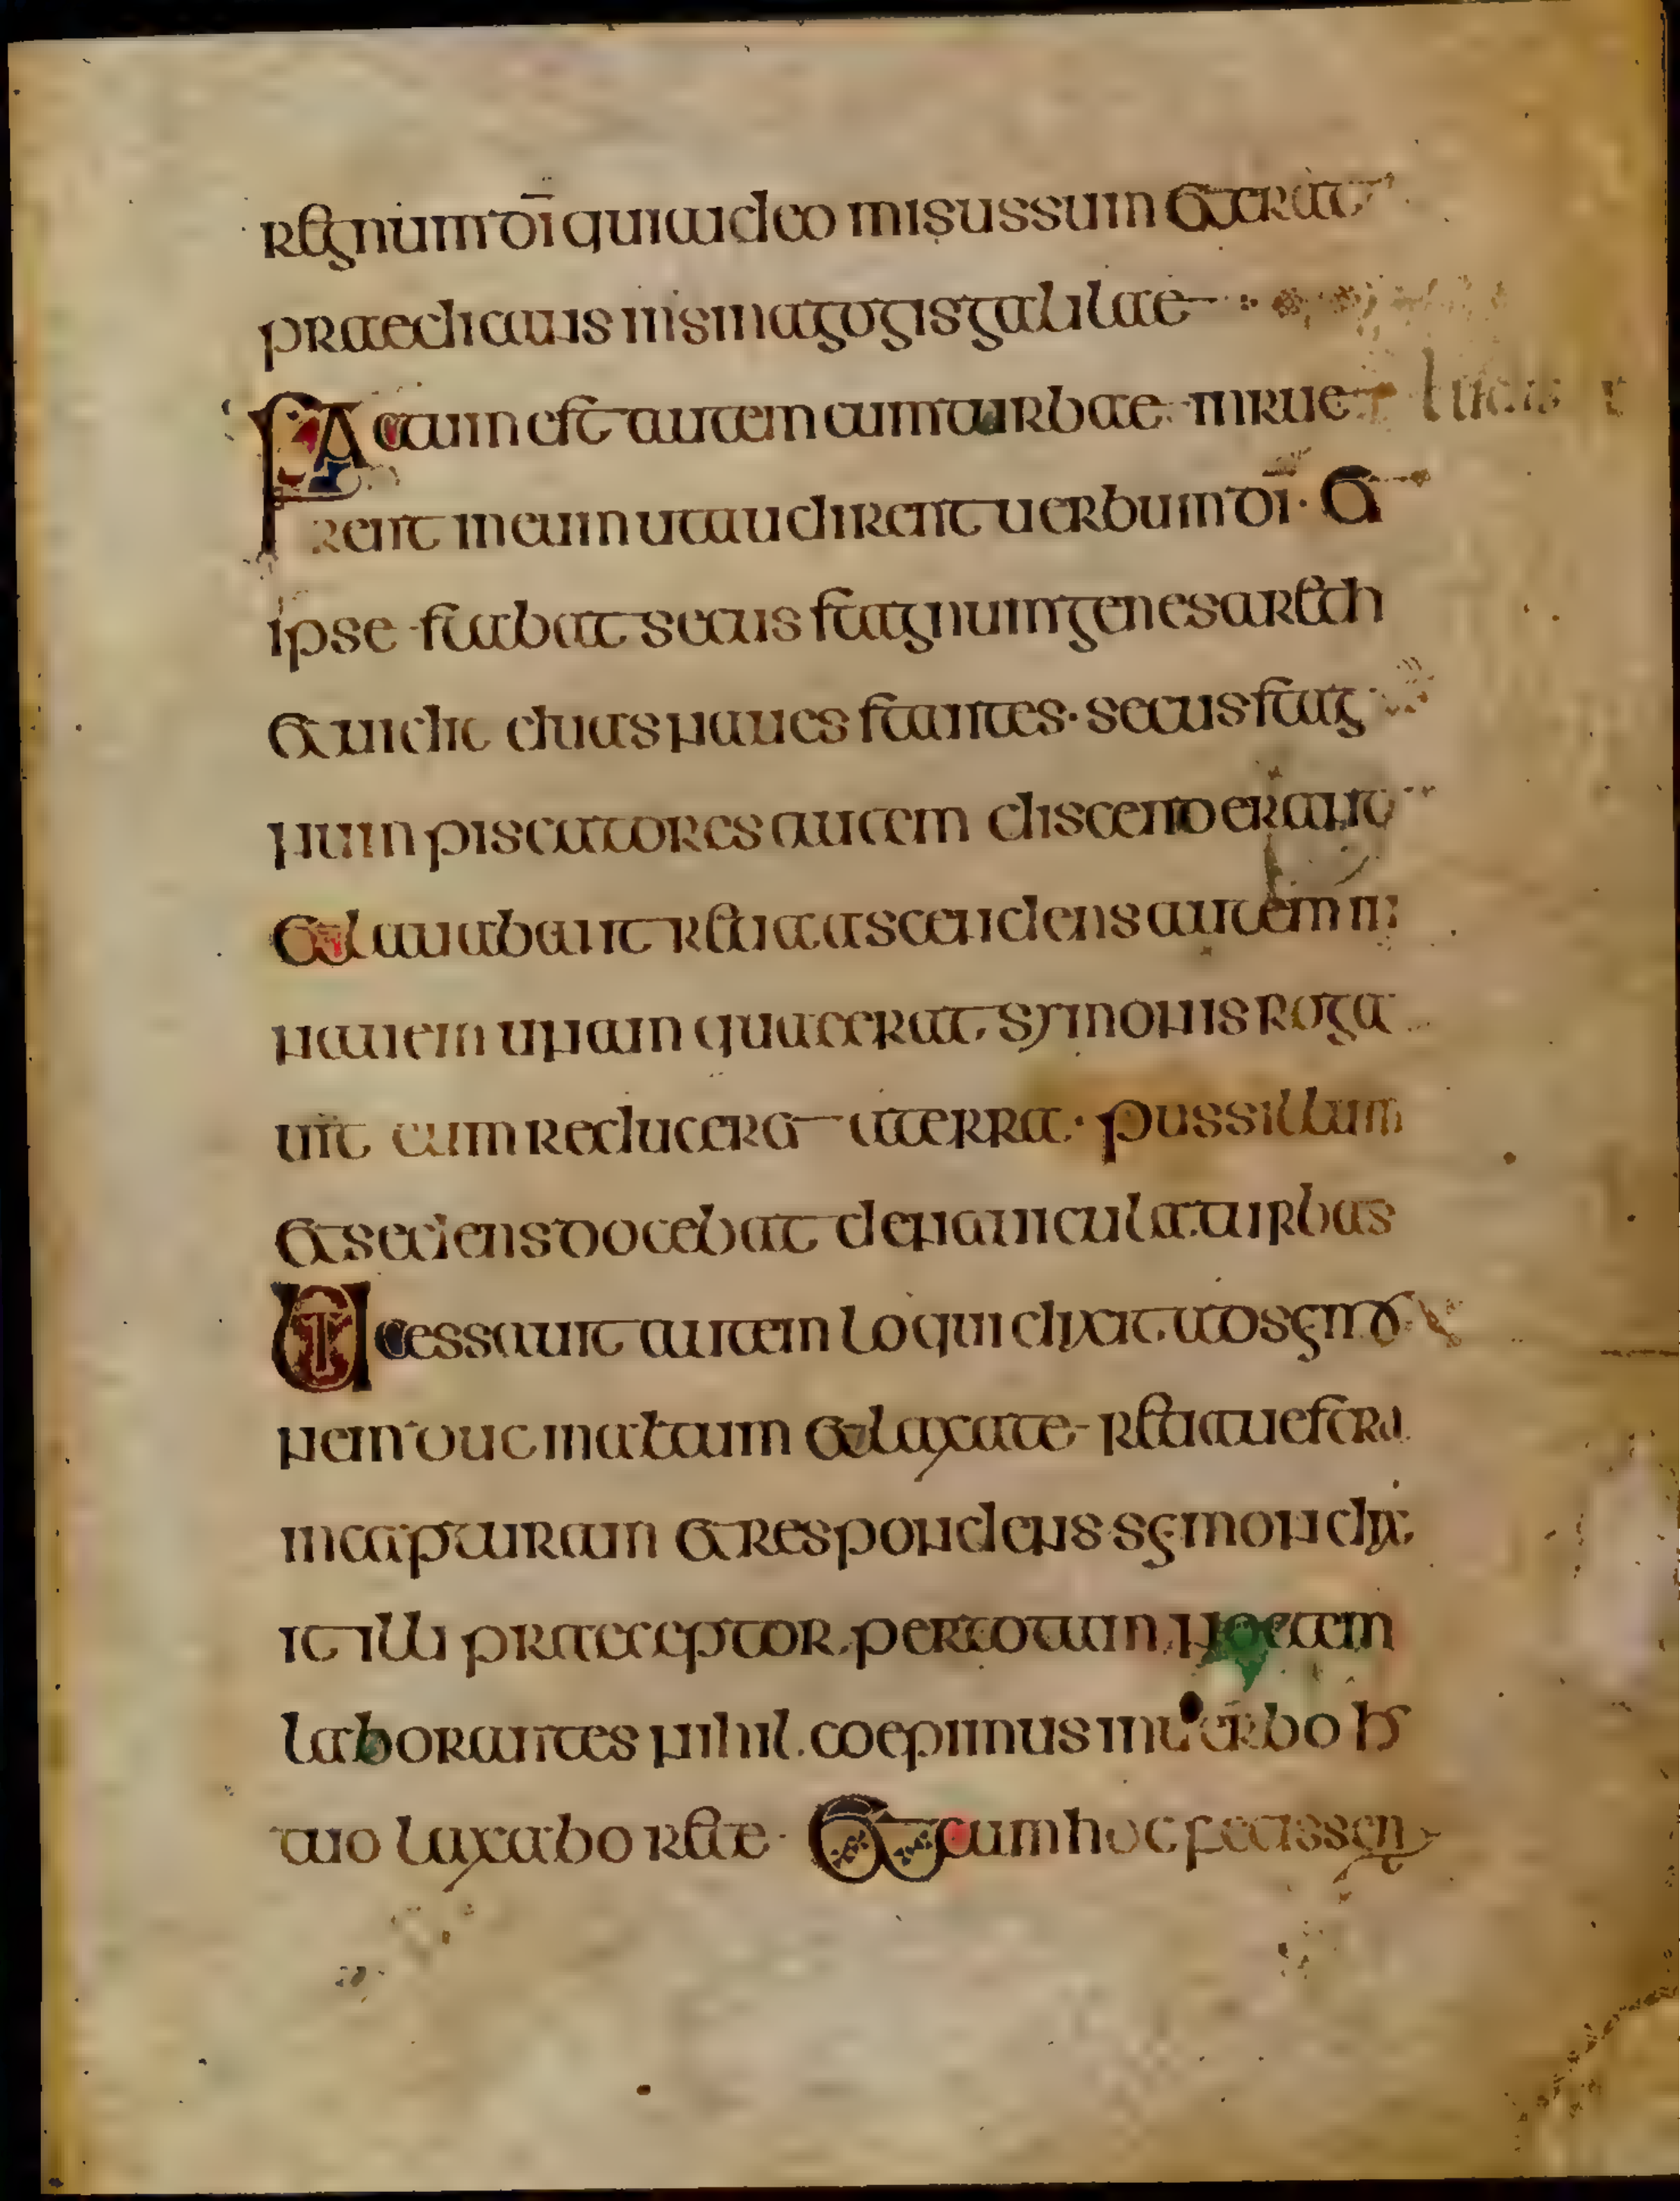 regnum dī quia ideo missus sum et erat
praedicans in sinagogis galilae
Factum est autem cum turbae inrue
rent in eum ut audirent uerbum dī · et
ipse stabat secus stagnum genesareth
et uidit duas naues stantes · secus stag
num piscatores autem discenderant
et lauabant retia ascendens autem in
nauem unam quae erat symonis roga
uit eum reducere a terra · pussillum
et sedens docebat de nauicula turbas
Ut cessauit autem loqui dixit ad simo
nem duc in altum et laxate retia uestra
in capturam et respondens simon dix
it illi praeceptor per totam noctem
laborantes nihil coepimus in uerbo h
tuo laxabo rete · Et cum hoc fecissen